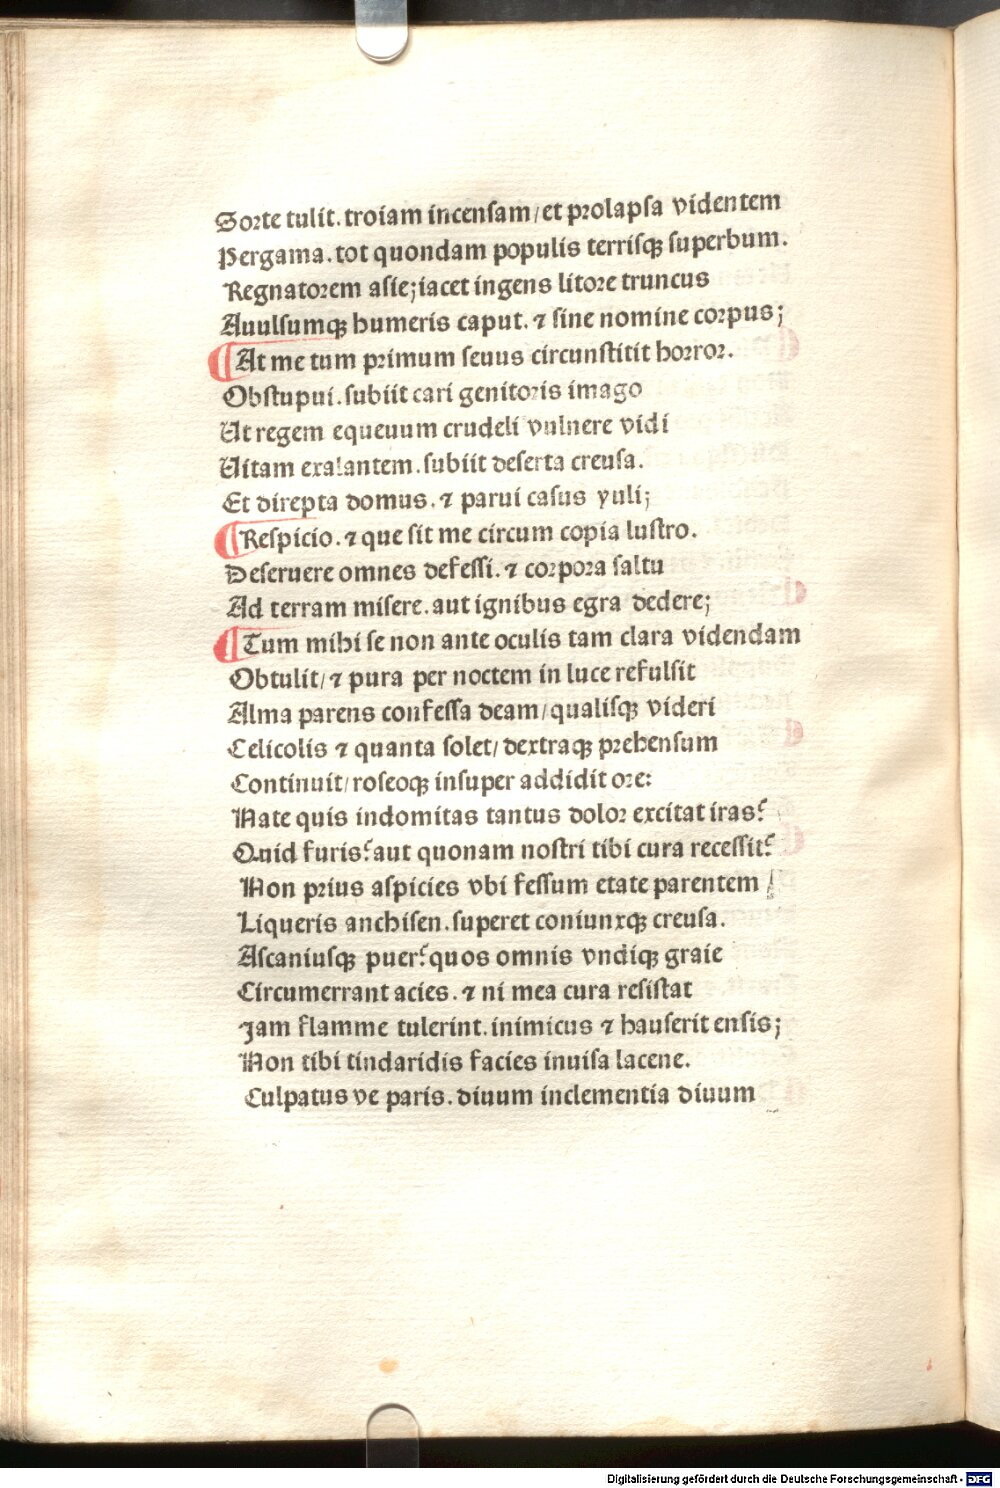 Sorte tulit. troiam incensam/ et prolapsa videntem
Pergama. tot quondam populis terrisqꝫ superbum.
Regnatorem asie; iacet ingens litore truncus
Auulsumqꝫ humeris caput. ⁊ sine nomine corpus;
¶ At me tum primum seuus circunstitit horror.
Obstupui. subiit cari genitoris imago
Ut regem equeuum crudeli vulnere vidi
Uitam exalantem. subiit deserta creusa.
Et direpta domus. ⁊ parui casus yuli;
¶ Respicio. ⁊ que sit me circum copia lustro.
Deseruere omnes defessi. ⁊ corpora saltu
Ad terram misere. aut ignibus egra dedere;
¶ Tum mihi se non ante oculis tam clara videndam
Obtulit/ ⁊ pura per noctem in luce refulsit
Alma parens confessa deam/ qualisqꝫ videri
Celicolis ⁊ quanta solet/ dextraqꝫ prehensum
Continuit/ roseoqꝫ insuper addidit ore:
Nate quis indomitas tantus dolor excitat iras?
Quid furis? aut quonam nostri tibi cura recessit?
Non prius aspicies vbi fessum etate parentem
Liqueris anchisen. superet coniunxqꝫ creusa.
Ascaniusqꝫ puer? quos omnis vndiqꝫ graie
Circumerrant acies. ⁊ ni mea cura resistat
Jam flamme tulerint. inimicus ⁊ hauserit ensis;
Non tibi tindaridis facies inuisa lacene.
Culpatus ve paris. diuum inclementia diuum
Digitalisierung gefördert durch die Deutsche Forschungsgemeinschaft - DFG